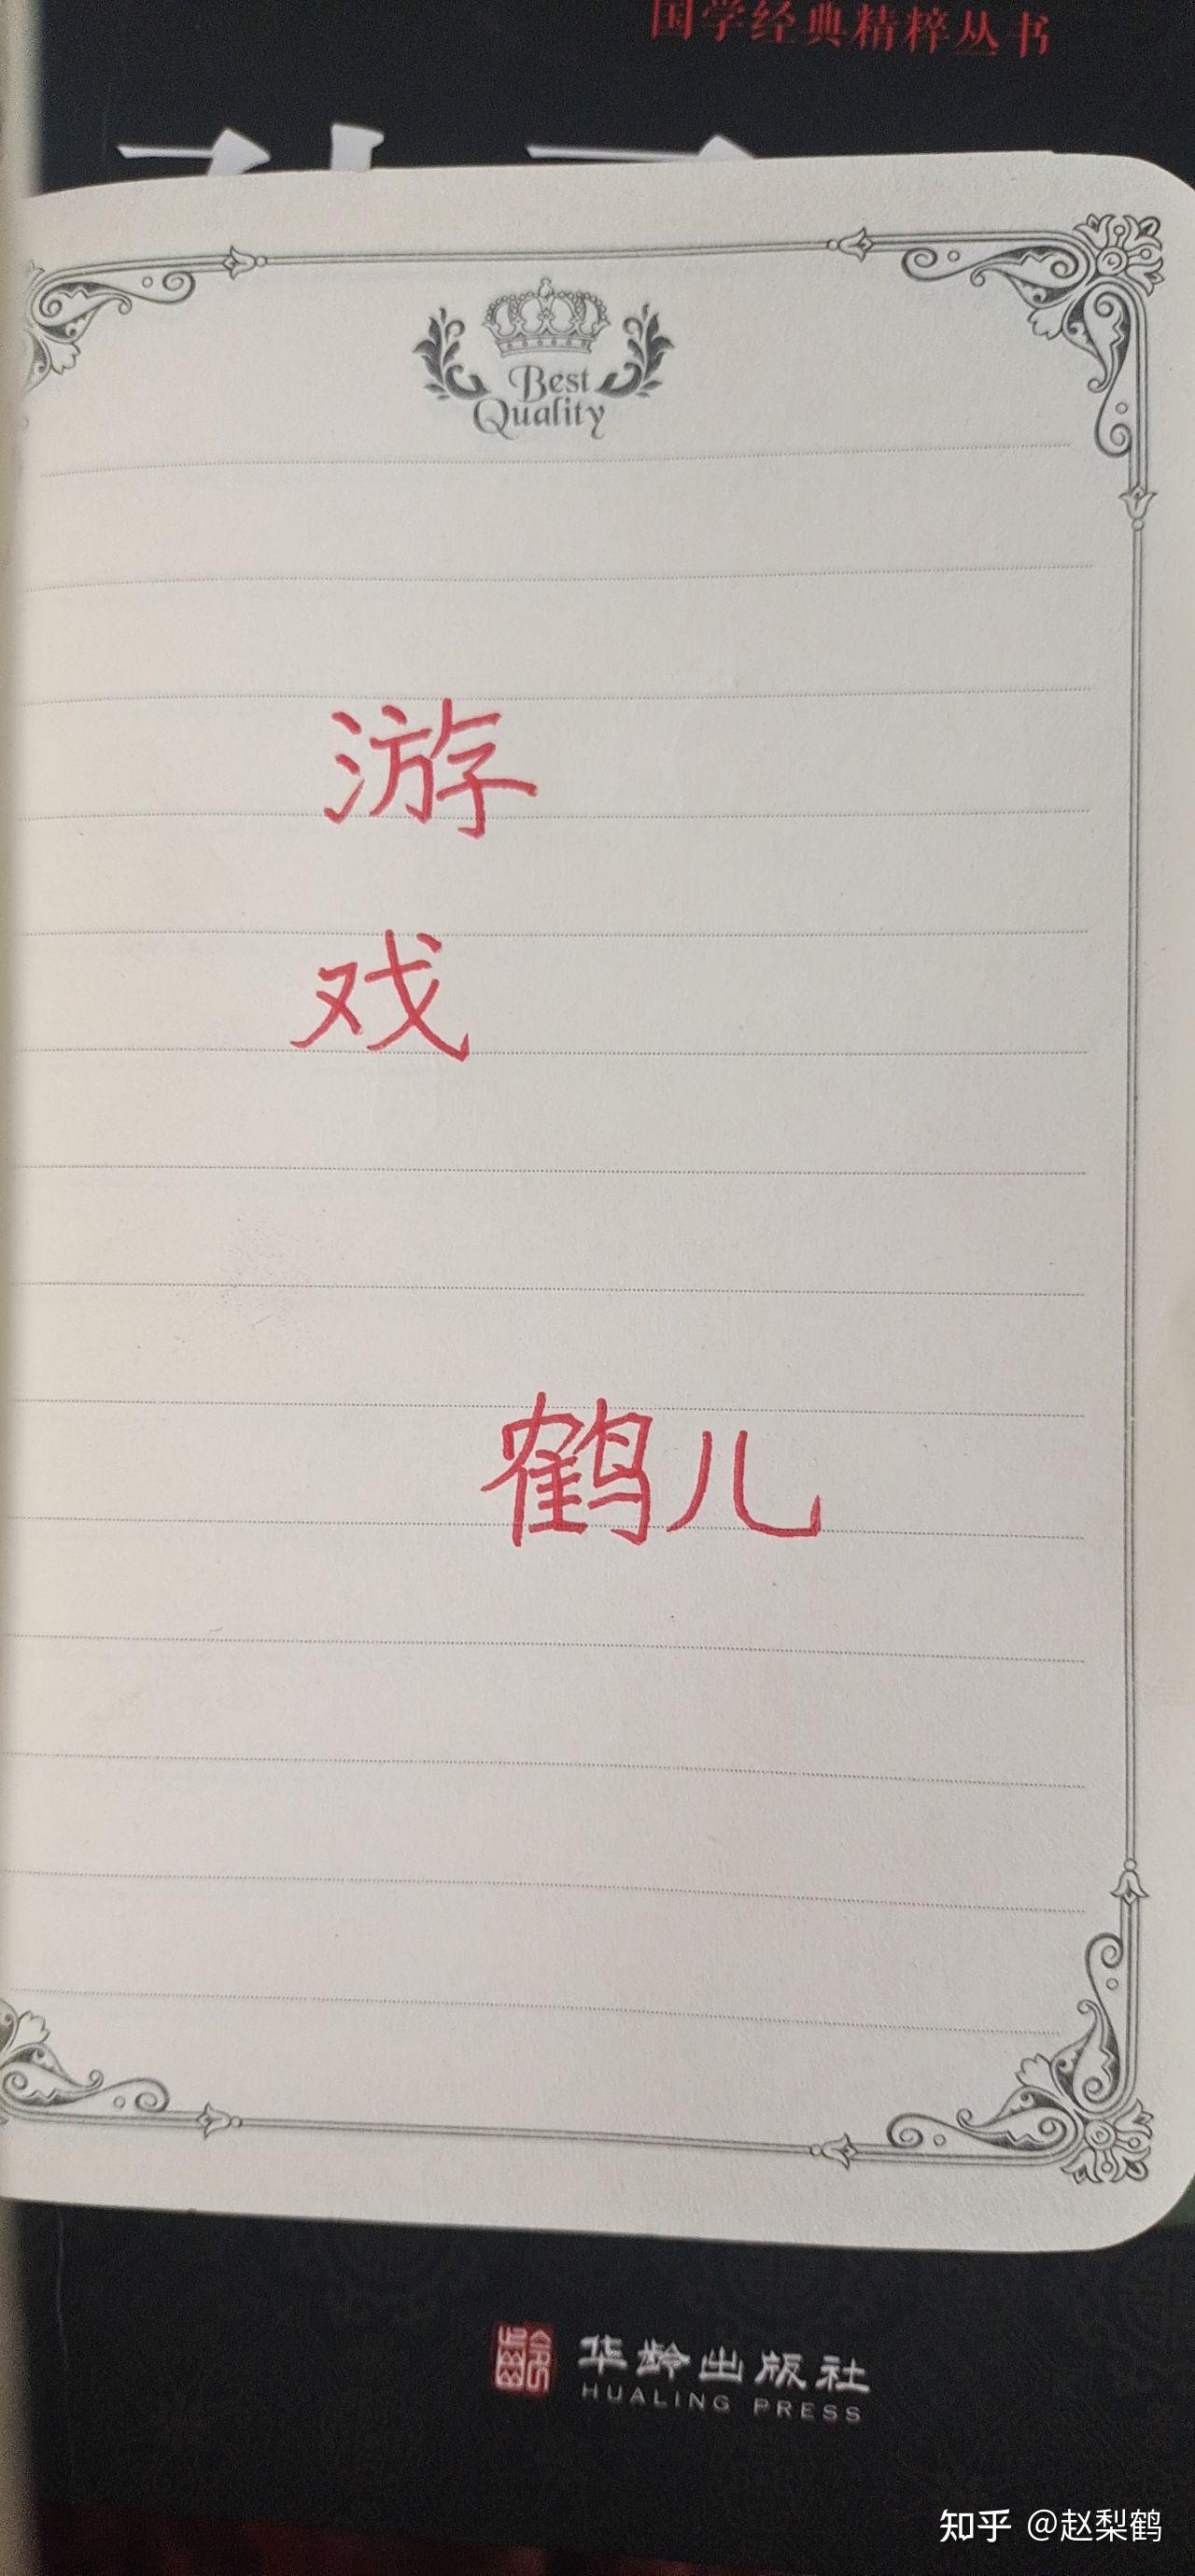 国学经典精粹丛书
Best
Quality
游
戏
鹤儿
华龄出版社
HUALING PRESS
知乎 @赵梨鹤